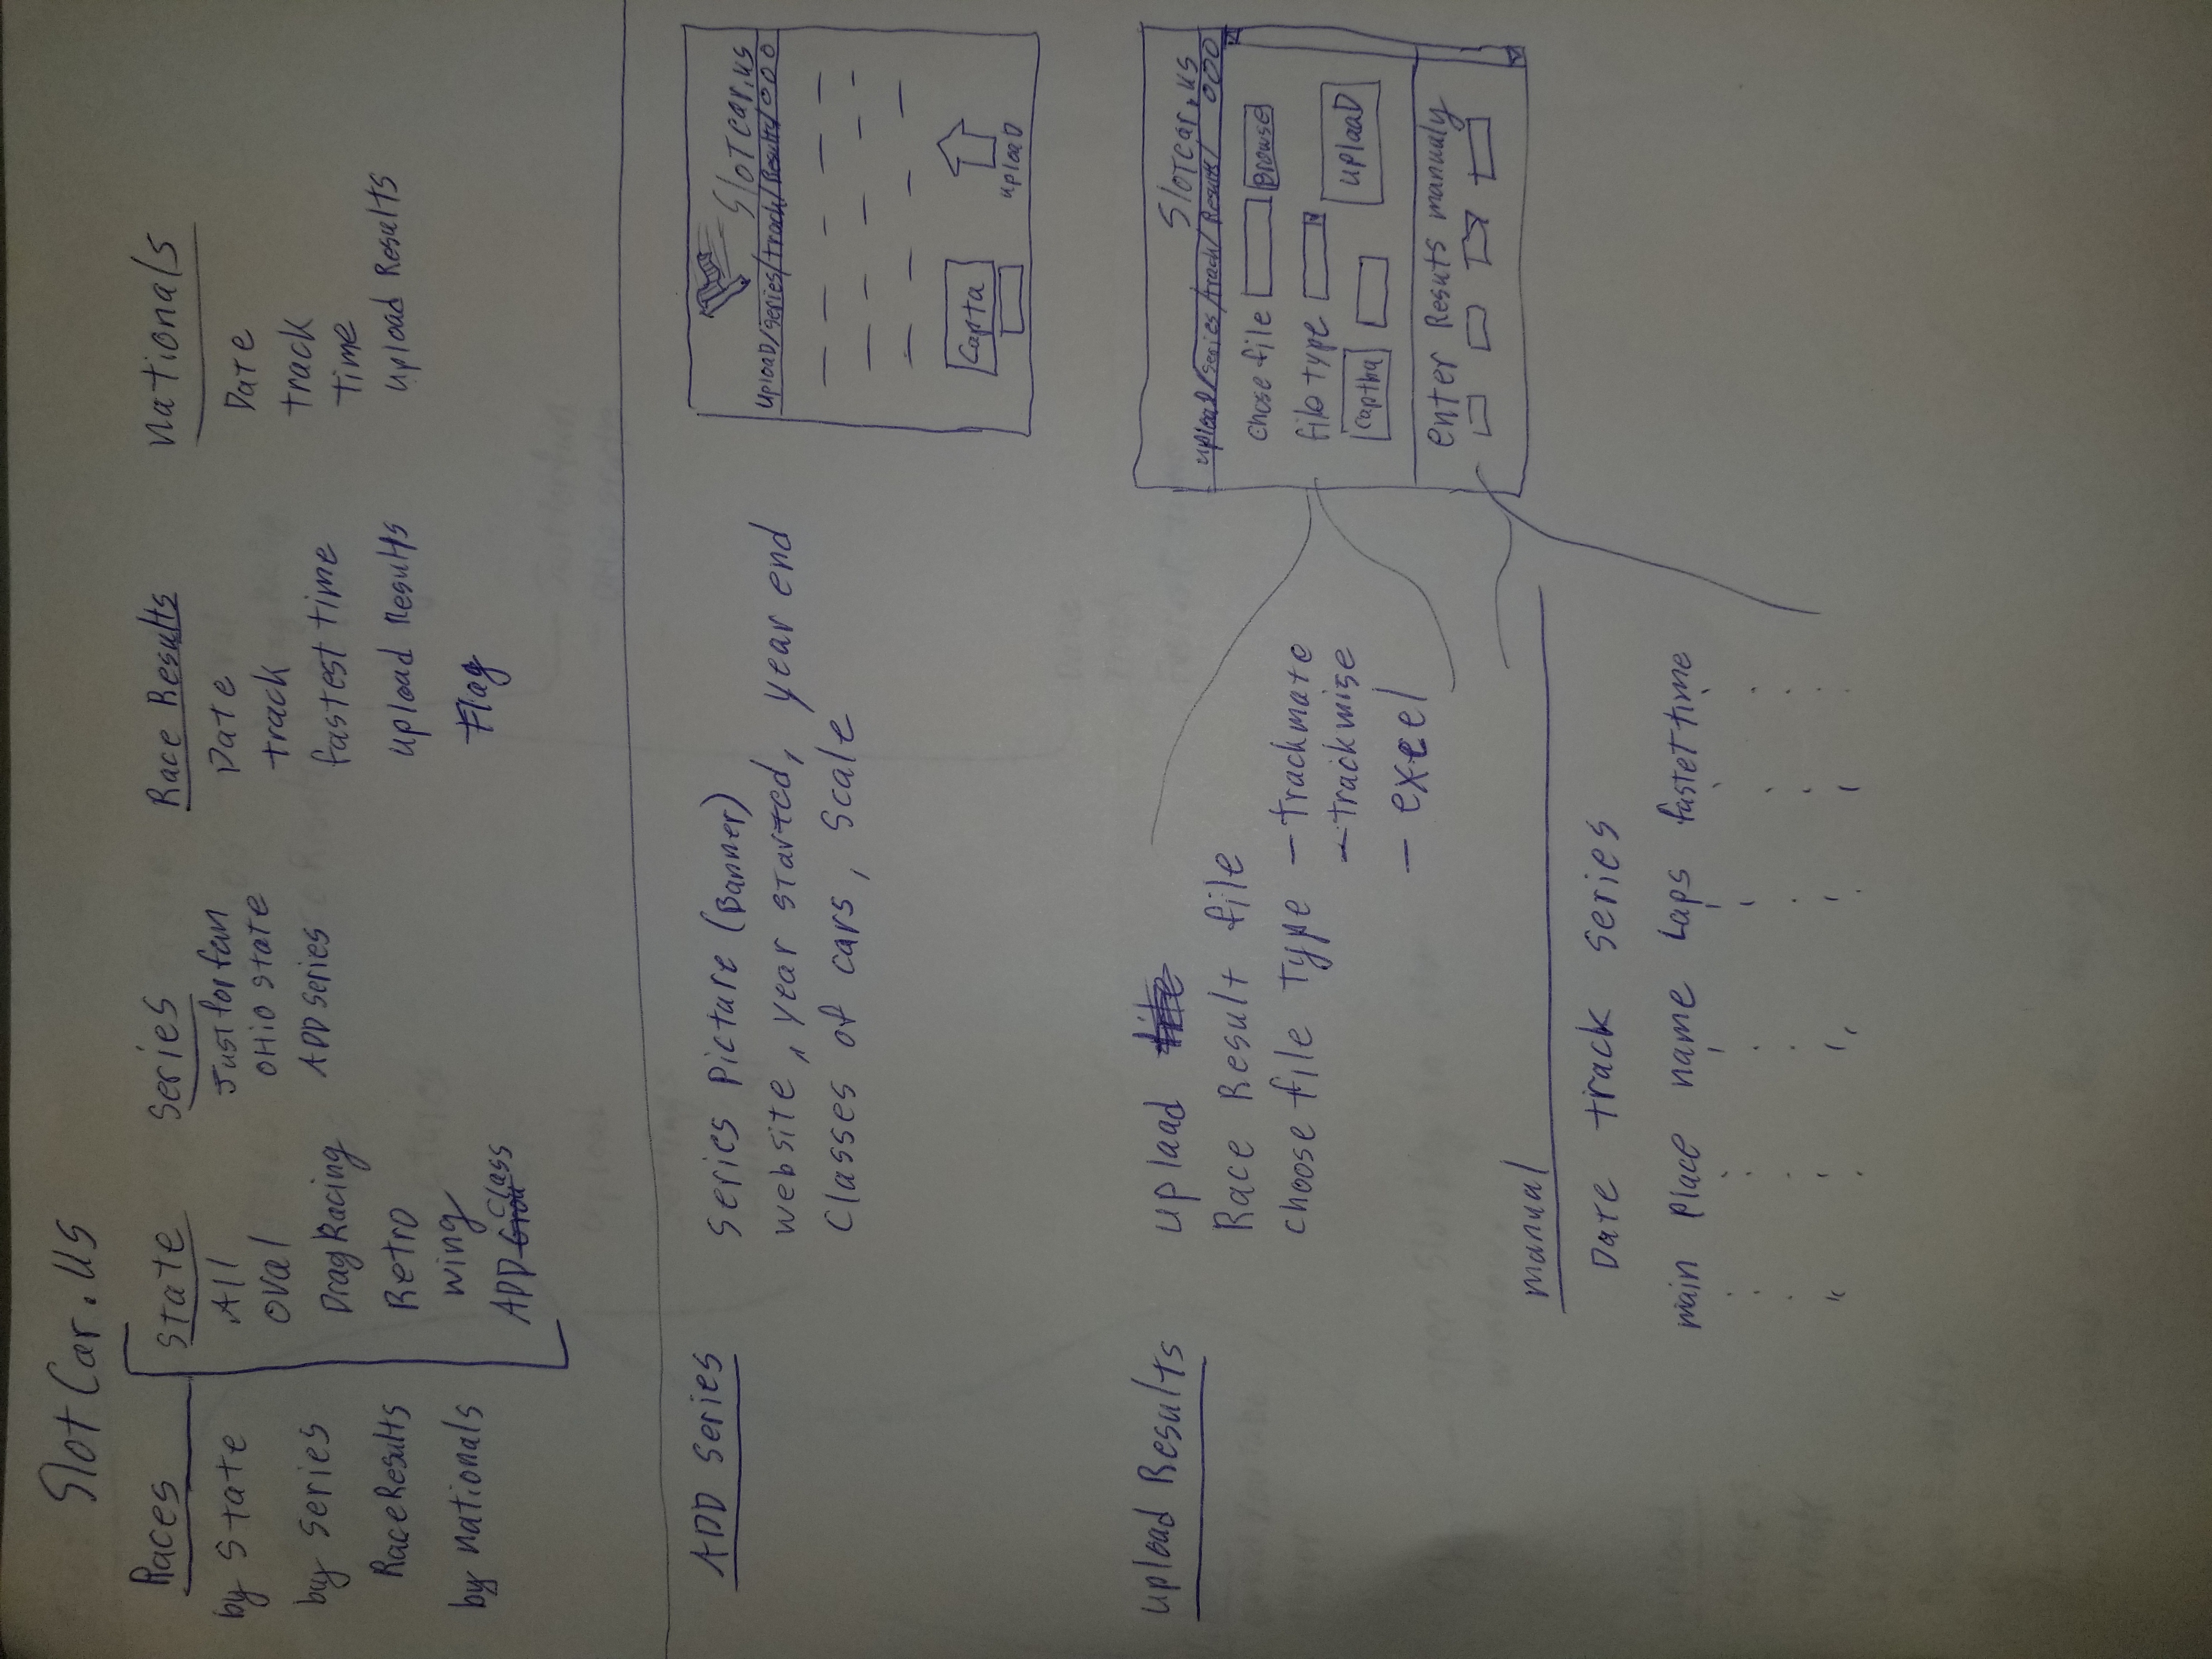 Slot Car.us
Races
by State
by series
Race Results
by nationals
State
All
oval
Drag Racing
Retro
wing
ADD Class
Series
Just for fun
OHio state
ADD series
Race Results
Date
track
fastest time
upload Results
Flag
Nationals
Date
track
time
upload Results
ADD Series
Series Picture (Banner)
website, year started, year end
Classes of cars, Scale
Slotcar.us
uploaD/series/track/Results/000
Capta
uploaD
upload Results
uplaad
Race Result file
choose file Type - trackmate
- trackmise
- excel
Slotcar.us
uploaD/series/track/Results/ 000
chose file Browse
file type
captha uplaaD
enter Resuts manualy
manual
Date track series
main Place name Laps fastet time